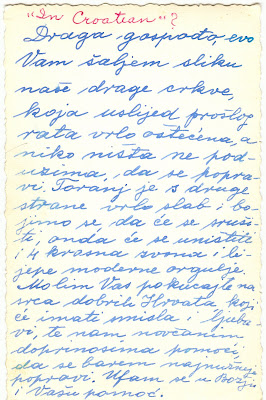 "In Croatian"?
Draga gospođo, evo
Vam šaljem sliku
naše drage crkve,
koja uslijed prošlog
rata vrlo oštećena, a
niko ništa ne pod-
uzima, da se popra-
vi. Toranj je s druge
strane vrlo slab i bo-
jimo se, da će se sruši-
ti, onda će se uništiti
i 4 krasna zvona i li-
jepe moderne orgulje.
Molim Vas pokucajte na
srca dobrih Hrvata koji
će imati smisla i ljuba-
vi, te nam novčanim
doprinosima pomoći,
da se barem najnužnije
popravi. Ufam se u Božju
i Vašu pomoć.